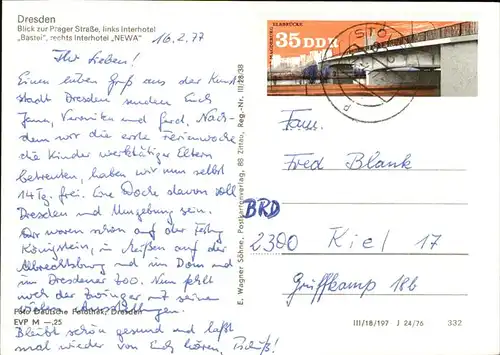 Dresden
Blick zur Prager Straße, links Interhotel
„Bastei", rechts Interhotel „NEWA"
16.2.77
Ihr Lieben!
Einen lieben Gruß aus der Kunst
stadt Dresden senden Euch
Jana, Veronika und Gerd. Nach-
dem wir die erste Ferienwoche
die Kinder werktätiger Eltern
betreuten, haben wir nun selbst
14 Tg. frei. Eine Woche davon soll
Dresden und Umgebung sein.
Wir waren schon auf der Festung
Königstein, in Meißen auf der
Albrechtsburg und im Dom und
im Dresdener Zoo. Nun fehlt
noch der Zwinger mit seinen
Foto Deutsche Fotothek, Dresden
EVP M –,25
Bleibt schön gesund und laßt
mal wieder von Euch hören, Tschüß!
E. Wagner Söhne, Postkartenverlag, 88 Zittau, Reg.-Nr. III/28/38
ELBBRÜCKE
MAGDEBURG
35 DDR
Fam.
Fred Blank
BRD
2300 Kiel 17
Grüffkamp 18b
III/18/197 J 24/76 332